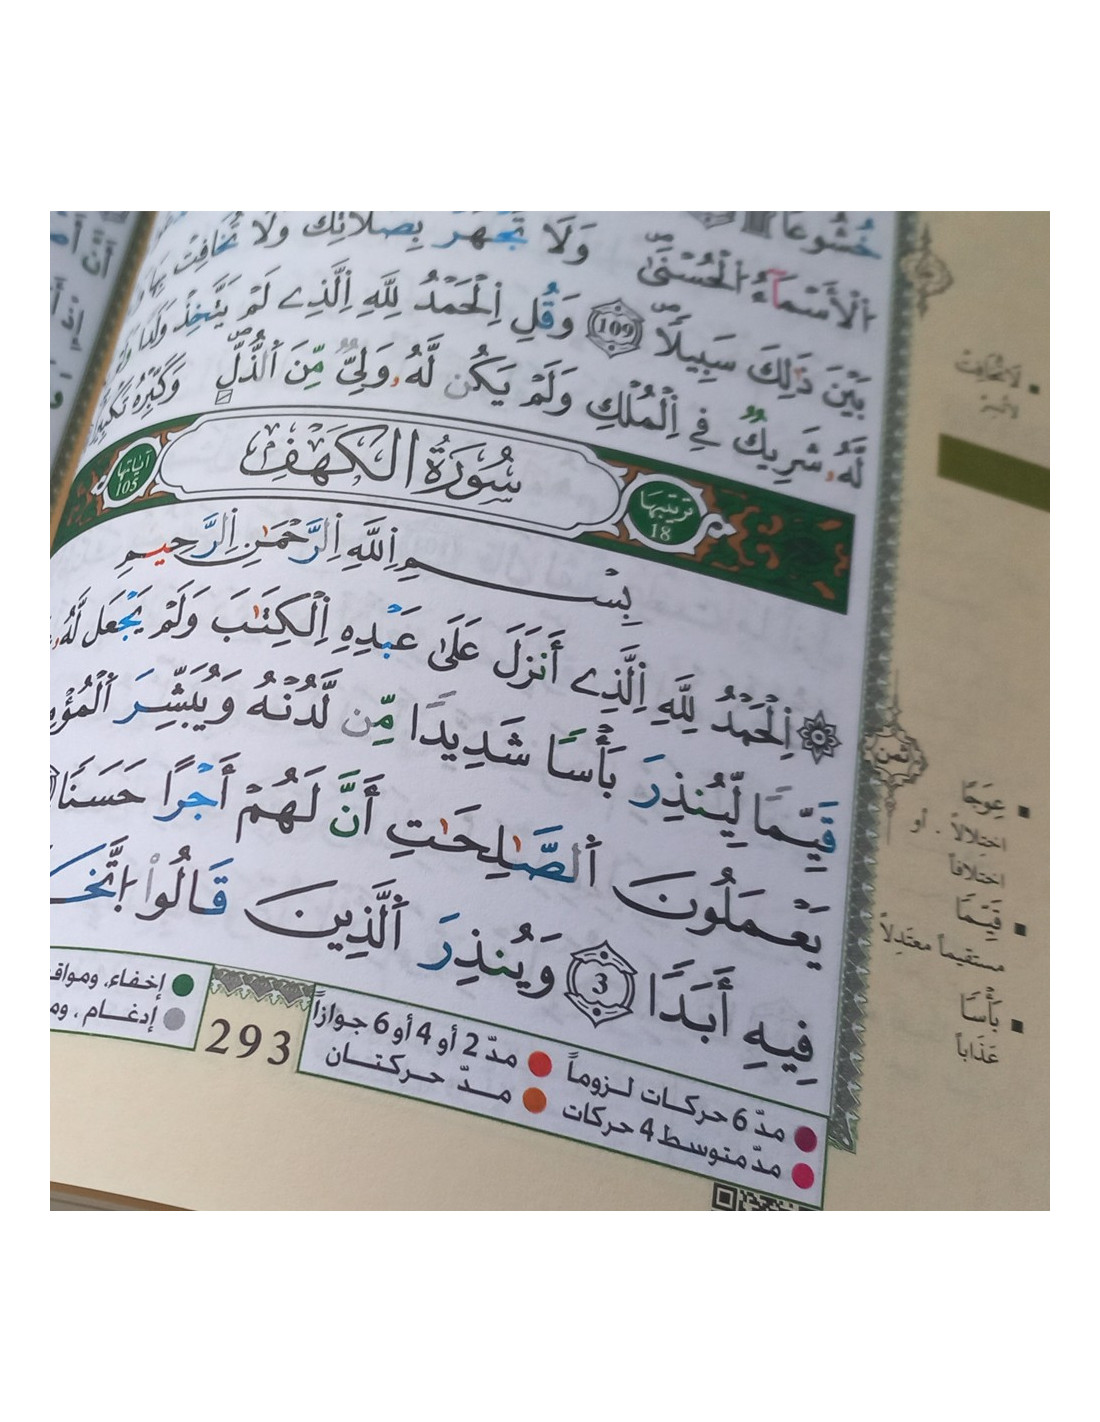 خُشُوعًا
اَ۬لَاسْمَآءُ اُ۬لْحُسْنَيٰۖ وَلَا تَجْهَرْ بِصَلَاتِكَ وَلَا تُخَافِتْ بِهَا
بَيْنَ ذَٰلِكَ سَبِيلًاۖ 109 وَقُلِ اِ۬لْحَمْدُ لِلهِ اِ۬لَّذِے لَمْ يَتَّخِذْ وَلَدًا وَلَمْ
لَّهُۥ شَرِيكٌ فِي اِ۬لْمُلْكِ وَلَمْ يَكُن لَّهُۥ وَلِيٌّ مِّنَ اَ۬لذُّلِّۖ وَكَبِّرْهُ تَكْبِيرًا
ترتيبها 18 سُورَةُ الكَهْفِ آياتها 105
بِسْمِ اِ۬للَّهِ اِ۬لرَّحْمَٰنِ اِ۬لرَّحِيمِ
۞ اِ۬لْحَمْدُ لِلهِ اِ۬لَّذِےٓ أَنزَلَ عَلَىٰ عَبْدِهِ اِ۬لْكِتَٰبَ وَلَمْ يَجْعَل لَّهُۥ
قَيِّمًا لِّيُنذِرَ بَأْسًا شَدِيدًا مِّن لَّدُنْهُ وَيُبَشِّرَ اَ۬لْمُؤْ
يَعْمَلُونَ اَ۬لصَّٰلِحَٰتِ أَنَّ لَهُمْ أَجْرًا حَسَنًا
فِيهِ أَبَدًا 3 وَيُنذِرَ اَ۬لَّذِينَ قَالُوا۟ اُ۪تَّخَ
مدّ 6 حركات لزوماً ● مدّ 2 أو 4 أو 6 جوازاً
مدّ متوسط 4 حركات ● مدّ حركتان
293
إخفاء، ومواق
إدغام، وم
لَا تُخَافِتْ
ثمن
عِوَجًا
اختلالاً . أو
اختلافاً
قَيِّمًا
مستقيماً معتدِلاً
بَأْسًا
عَذَاباً